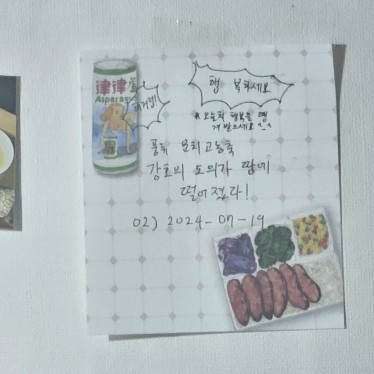 津津
Asparagus
행 복하세요
오늘의 행복을 명
겨 받으세요 ^_^
강호의 도의가 땅에
떨어졌다!
02) 2024-07-19